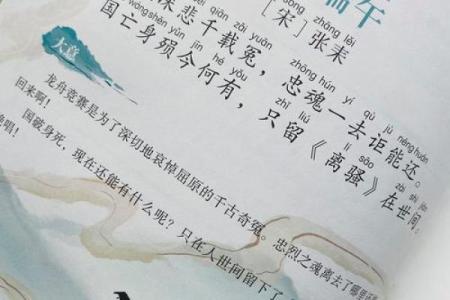 端午
sòng zhāng lěi
[宋] 张耒
深悲千载冤，忠魂一去讵能还。
wáng shēn yǔn jīn hé yǒu
国亡身殒今何有，只留《离骚》在世间。
大意
龙舟竞赛是为了深切地哀悼屈原的千古奇冤。忠烈之魂离去了哪里
回来啊！
国破身死，现在还能有什么呢？只在人世间留下了
绝唱！